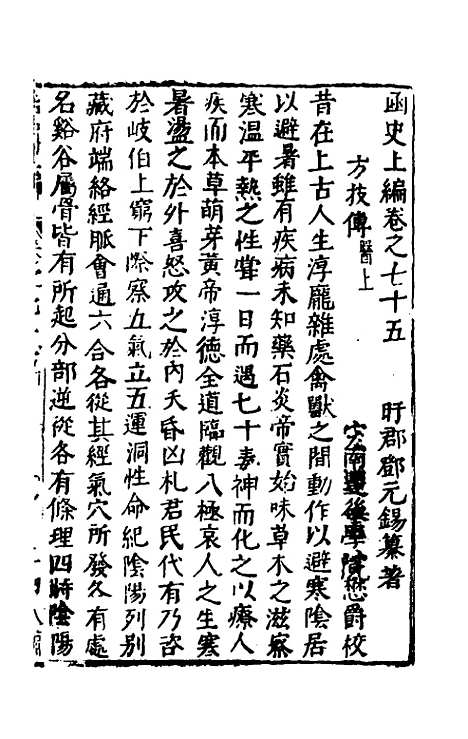 函史上編卷之七十五　盱郡鄧元錫纂著
方技傳醫上　後學　懋爵校
昔在上古人生淳龐雜處禽獸之間動作以避寒陰居
以避暑雖有疾病未知藥石炎帝實始味草木之滋察
寒溫平熱之性甞一日而遇七十毒神而化之以療人
疾而本草萌芽黃帝淳德全道臨觀八極哀人之生寒
暑盪之於外喜怒攻之於內夭昏凶札君民代有乃咨
於岐伯上窮下際察五氣立五運洞性命紀陰陽列別
藏府端絡經脈會通六合各從其經氣穴所發各有處
名谿谷屬骨皆有所起分部逆從各有條理四時陰陽